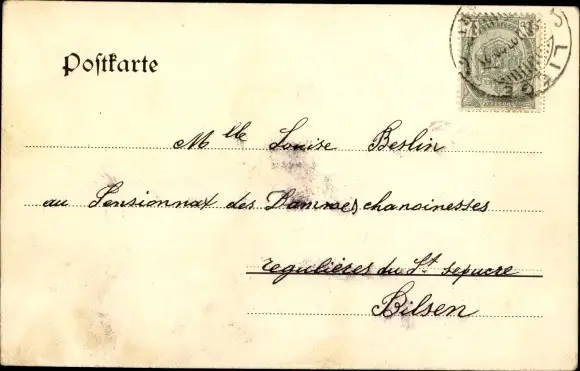 Postkarte
LIEGE
Mlle Louise Berlin
au Pensionnat des Dammes chanoinesses
regulieres du St sepucre
Bilsen